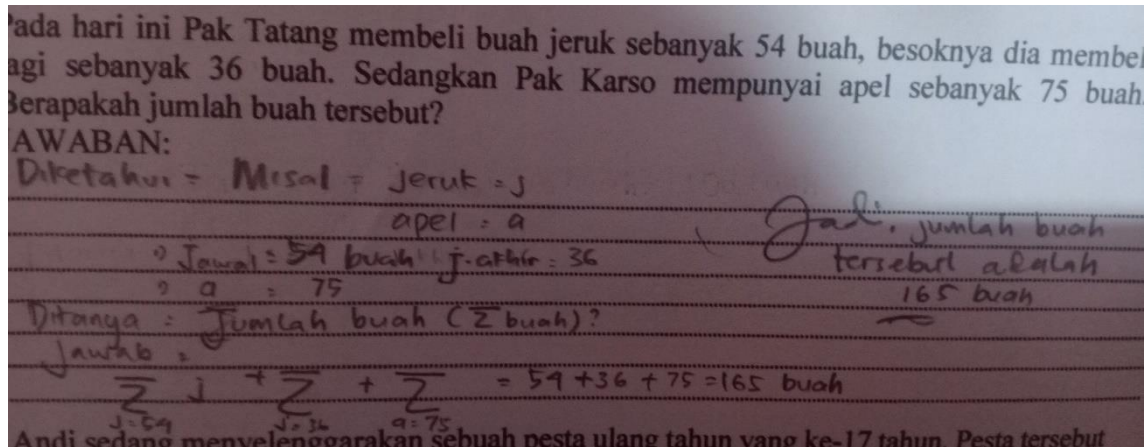 ada hari ini Pak Tatang membeli buah jeruk sebanyak 54 buah, besoknya dia membel
agi sebanyak 36 buah. Sedangkan Pak Karso mempunyai apel sebanyak 75 buah.
Berapakah jumlah buah tersebut?
AWABAN:
Diketahui = Misal = jeruk = j
apel = a
Jawal = 54 buah j.akhir = 36
a = 75
Ditanya = Jumlah buah (Σ buah)?
Jawab =
Σ j + Σ + Σ = 54 + 36 + 75 = 165 buah
j=54 j=36 a=75
Jadi, jumlah buah
tersebut adalah
165 buah
Andi sedang menyelenggarakan sebuah pesta ulang tahun yang ke-17 tahun. Pesta tersebut